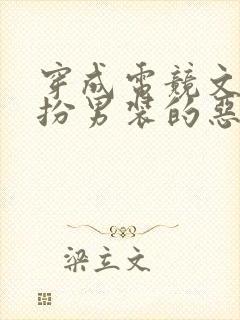 穿成電競文
扮男裝的惡
梁立文